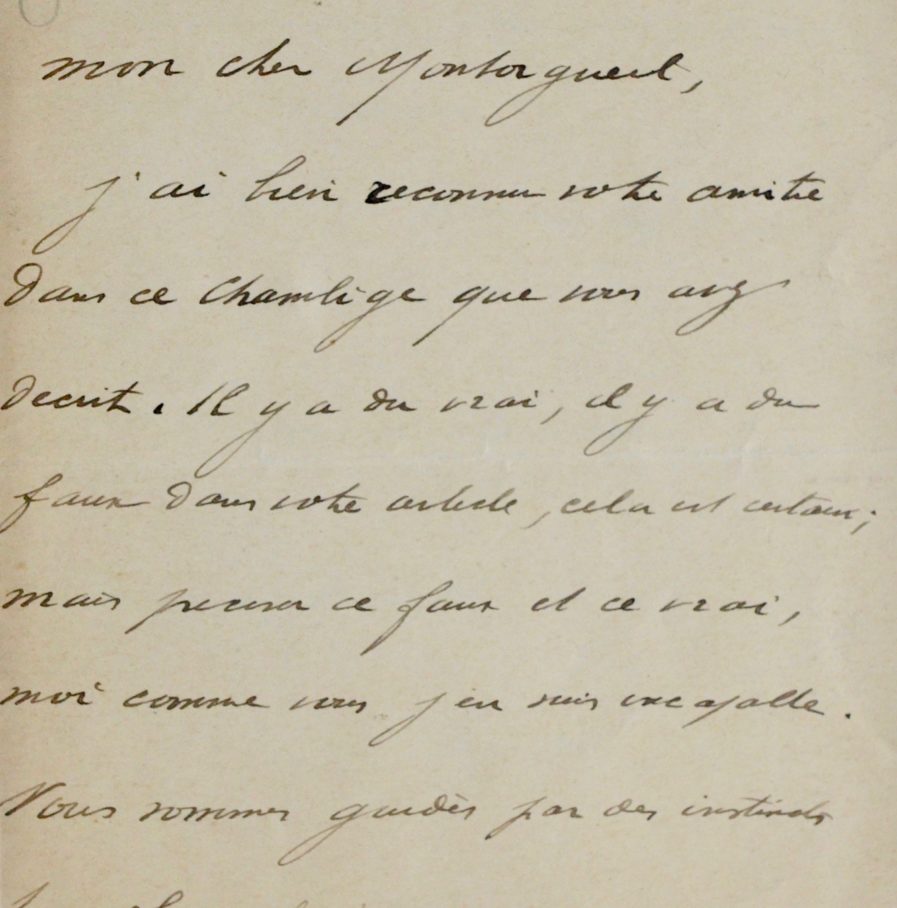 mon cher Montorgueil,
j'ai bien reconnu votre amitié
dans ce Chambige que vous avez
décrit. Il y a du vrai, il y a du
faux dans votre article, cela est certain ;
mais préciser ce faux et ce vrai,
moi comme vous j'en suis incapable.
Nous sommes guidés par des instincts